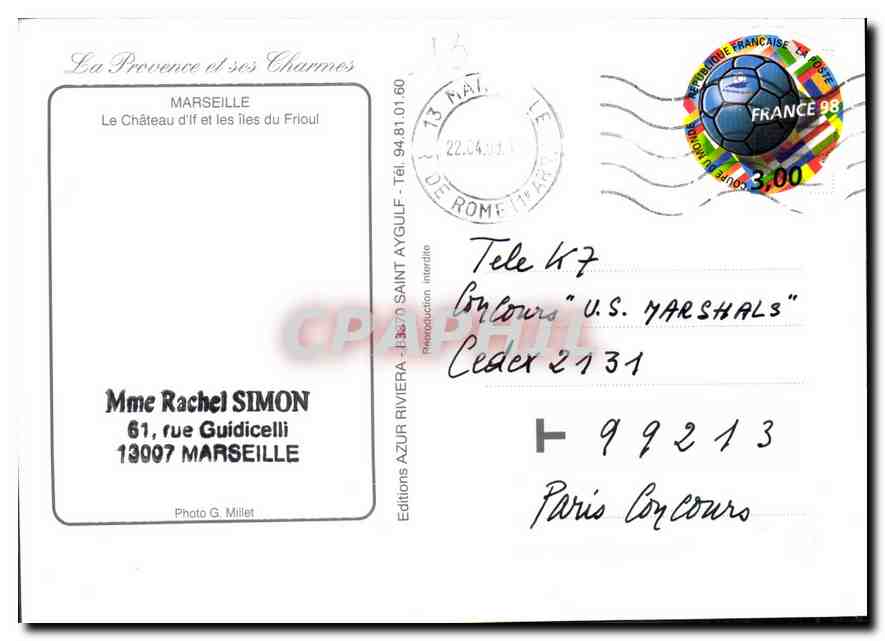 La Provence et ses Charmes
MARSEILLE
Le Château d'If et les îles du Frioul
Mme Rachel SIMON
61, rue Guidicelli
13007 MARSEILLE
Photo G. Millet
Editions AZUR RIVIERA - 83370 SAINT AYGULF - Tél. 94.81.01.60
Reproduction interdite
13 MAR LE
22.04.
DE ROME (1e ARR.
REPUBLIQUE FRANÇAISE LA POSTE
FRANCE 98
COUPE DU MONDE
3,00
Tele K7
Concours "U.S. MARSHALS"
Cedex 2131
T 99213
Paris Concours
CPAPHIL